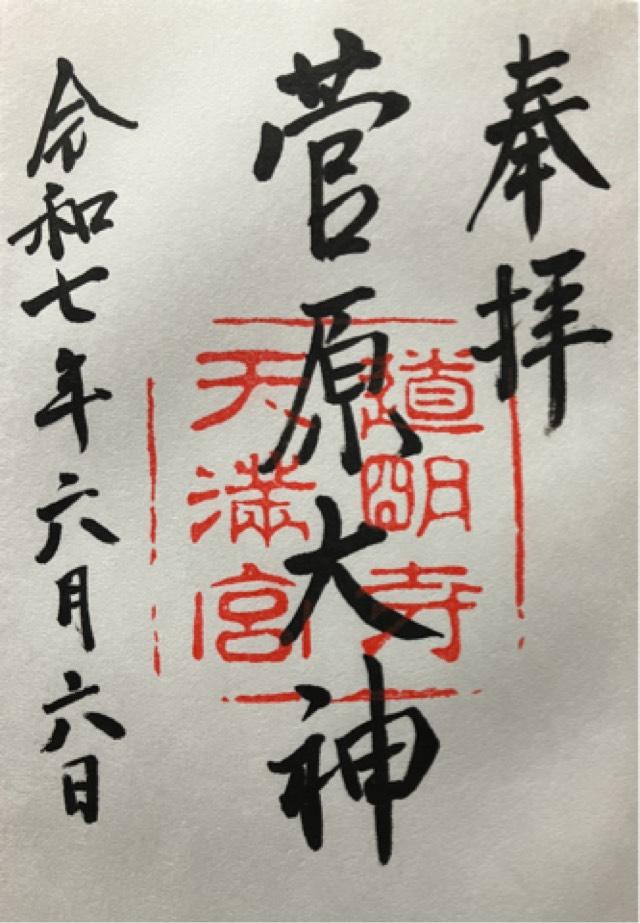 奉拝
菅原大神
道明寺
天満宮
令和七年六月六日